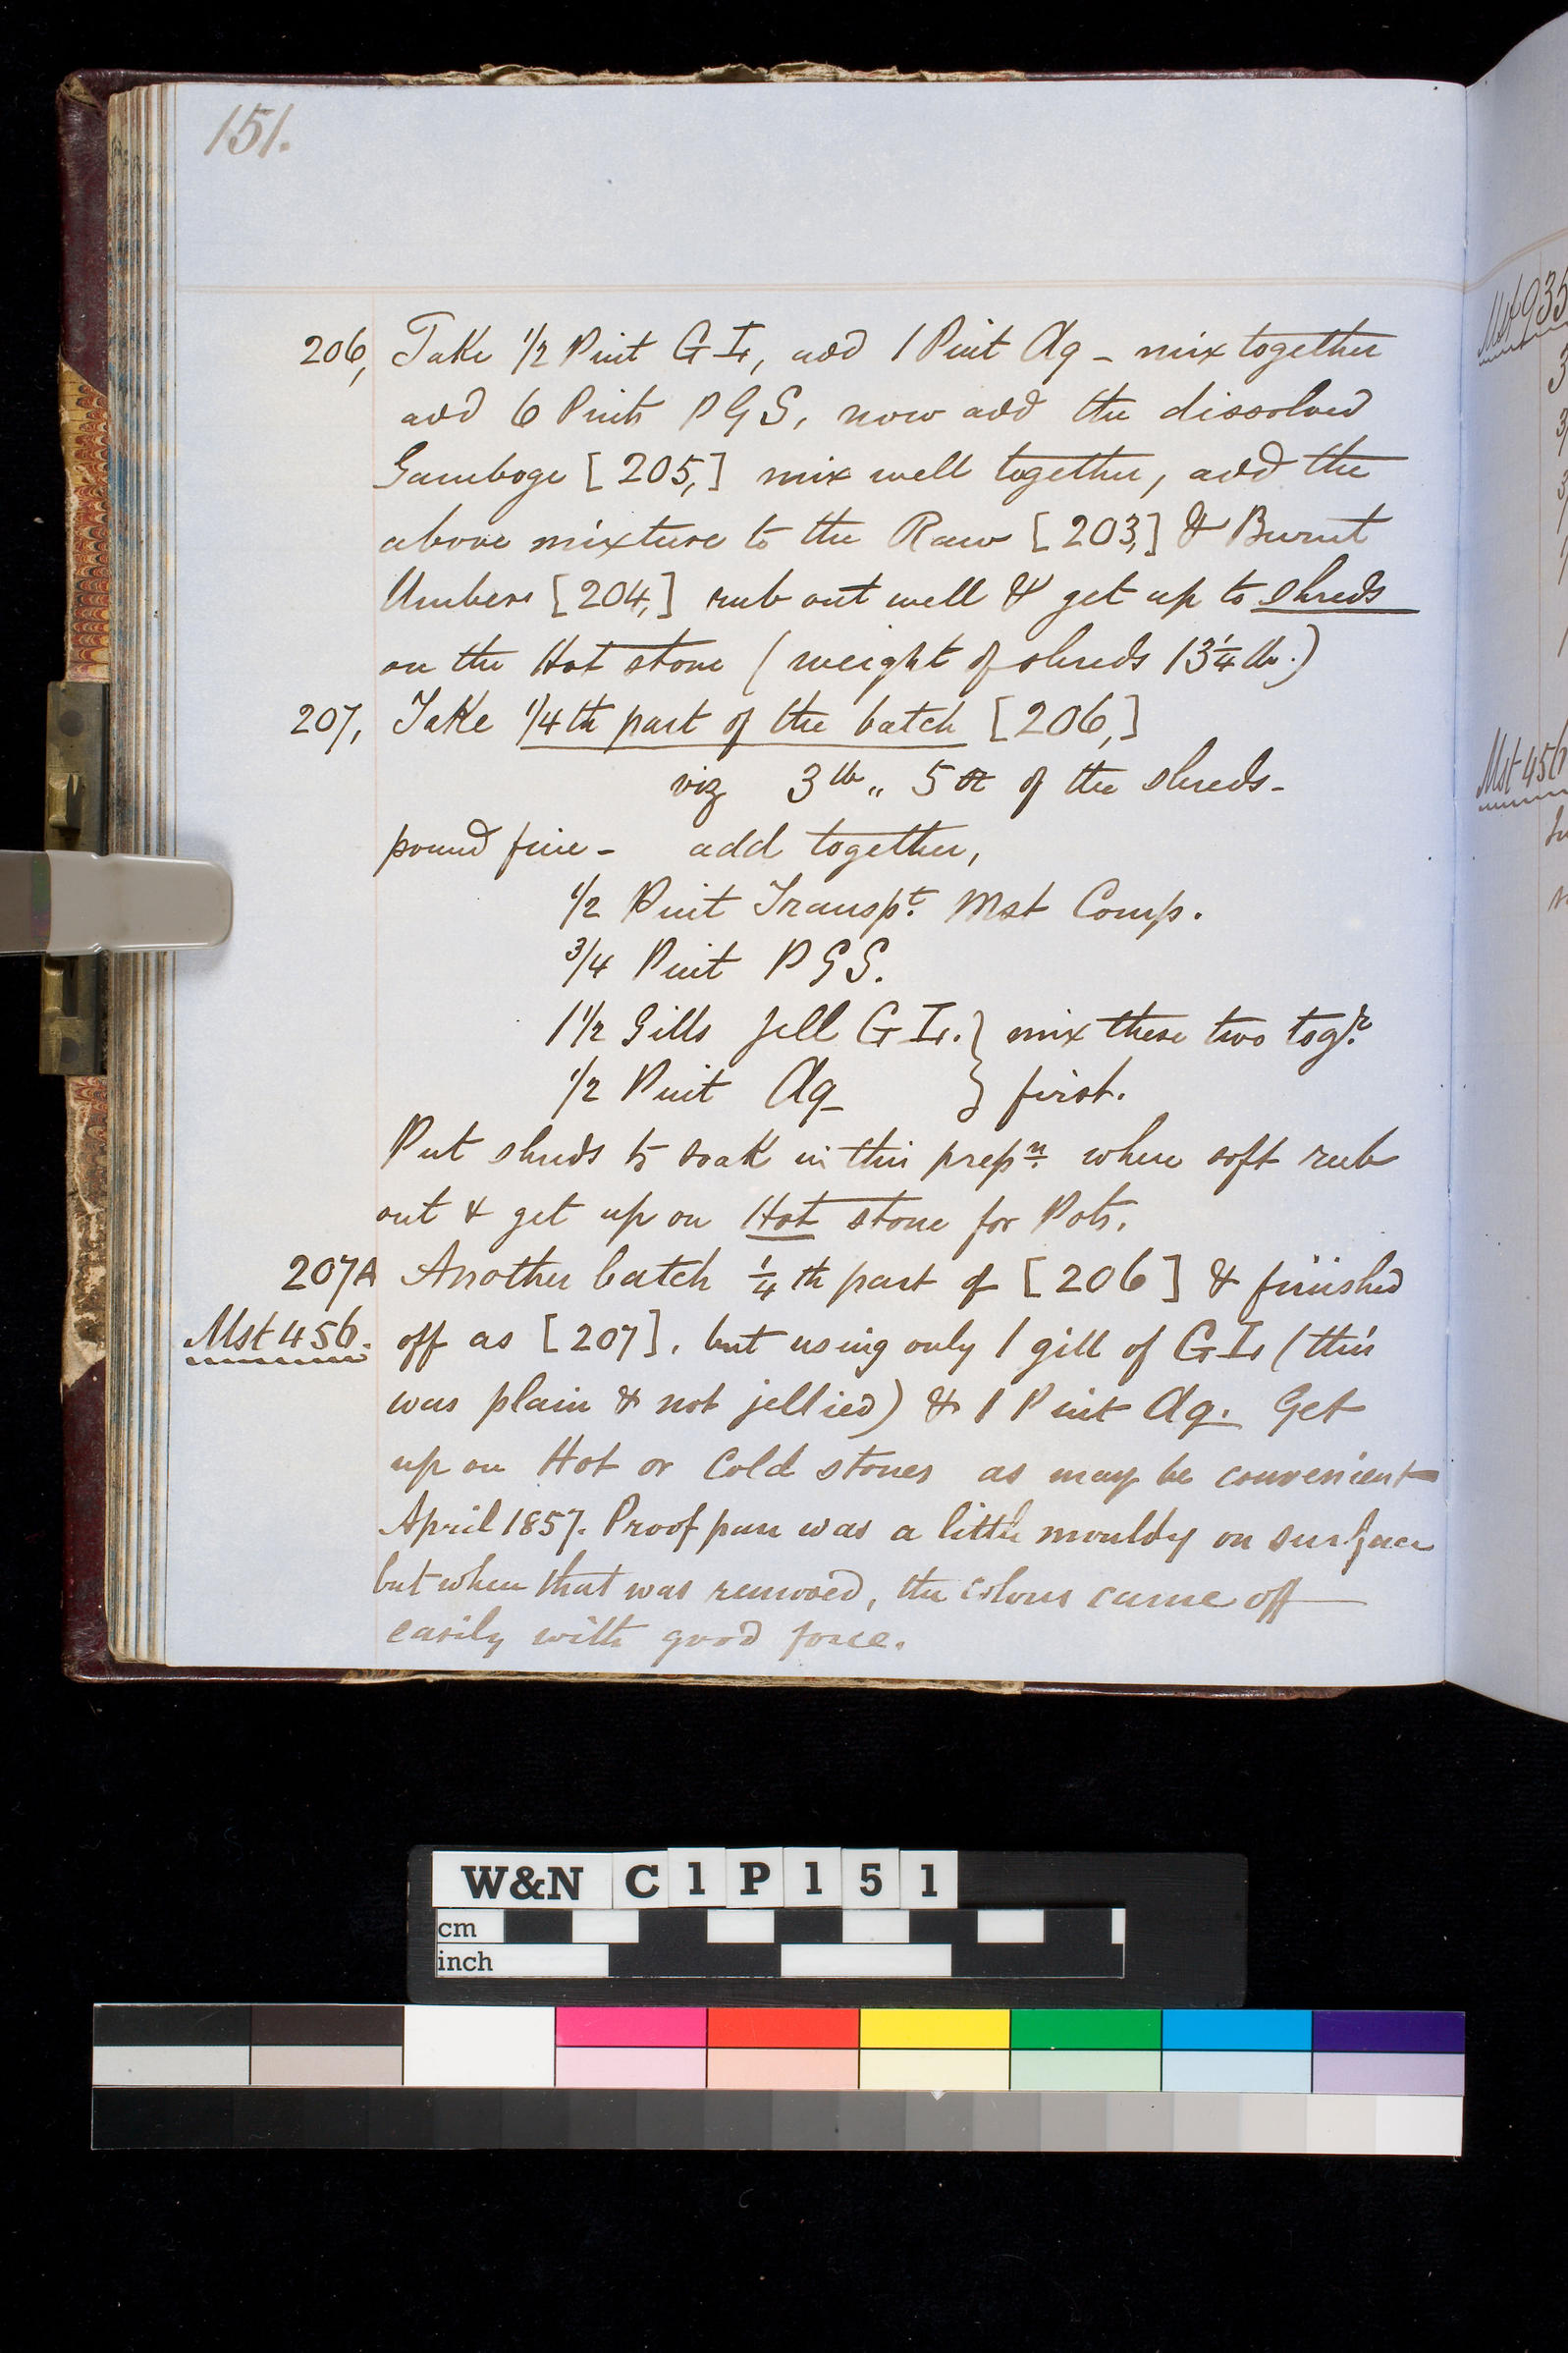 151.
206, Take 1/2 Pint G I, add 1 Pint Aq - mix together
add 6 Pints P G S, now add the dissolved
Gamboge [205,] mix well together, add the
above mixture to the Raw [203,] & Burnt
Umbers [204,] rub out well & get up to shreds
on the Hot stone (weight of shreds 13 1/4 lb.)
207, Take 1/4th part of the batch [206,]
viz 3 lb ,, 5 oz of the shreds -
pound fine - add together,
1/2 Pint Transpt. Mst Comp.
3/4 Pint P G S.
1 1/2 Gills Jell G I. } mix these two togr.
1/2 Pint Aq } first.
Put shreds to soak in this prepn. when soft rub
out & get up on Hot stone for Pots.
207A Another batch 1/4 th part of [206] & finished
Mst 456. off as [207]. but using only 1 gill of G I (this
was plain & not jellied) & 1 Pint Aq. Get
up on Hot or Cold stones as may be convenient
April 1857. Proof pan was a little mouldy on surface
but when that was removed, the colour came off
easily with good force.
Mst 935
Mst 456
W&N C1P151
cm
inch